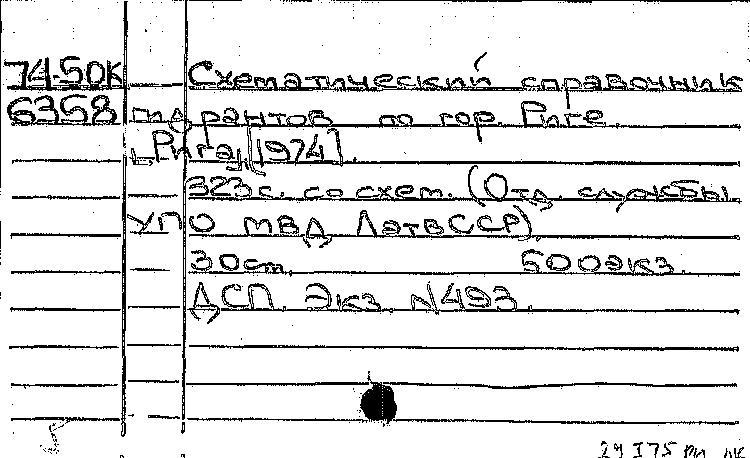 74-50К Схематический справочник
6358 гидрантов по гор. Риге.
[Рига], [1974].
323 с. со схем. (Отд. службы
УПО МВД ЛатвССР).
30 ст. 500 экз.
ДСП. Экз. N493.
29 I 75